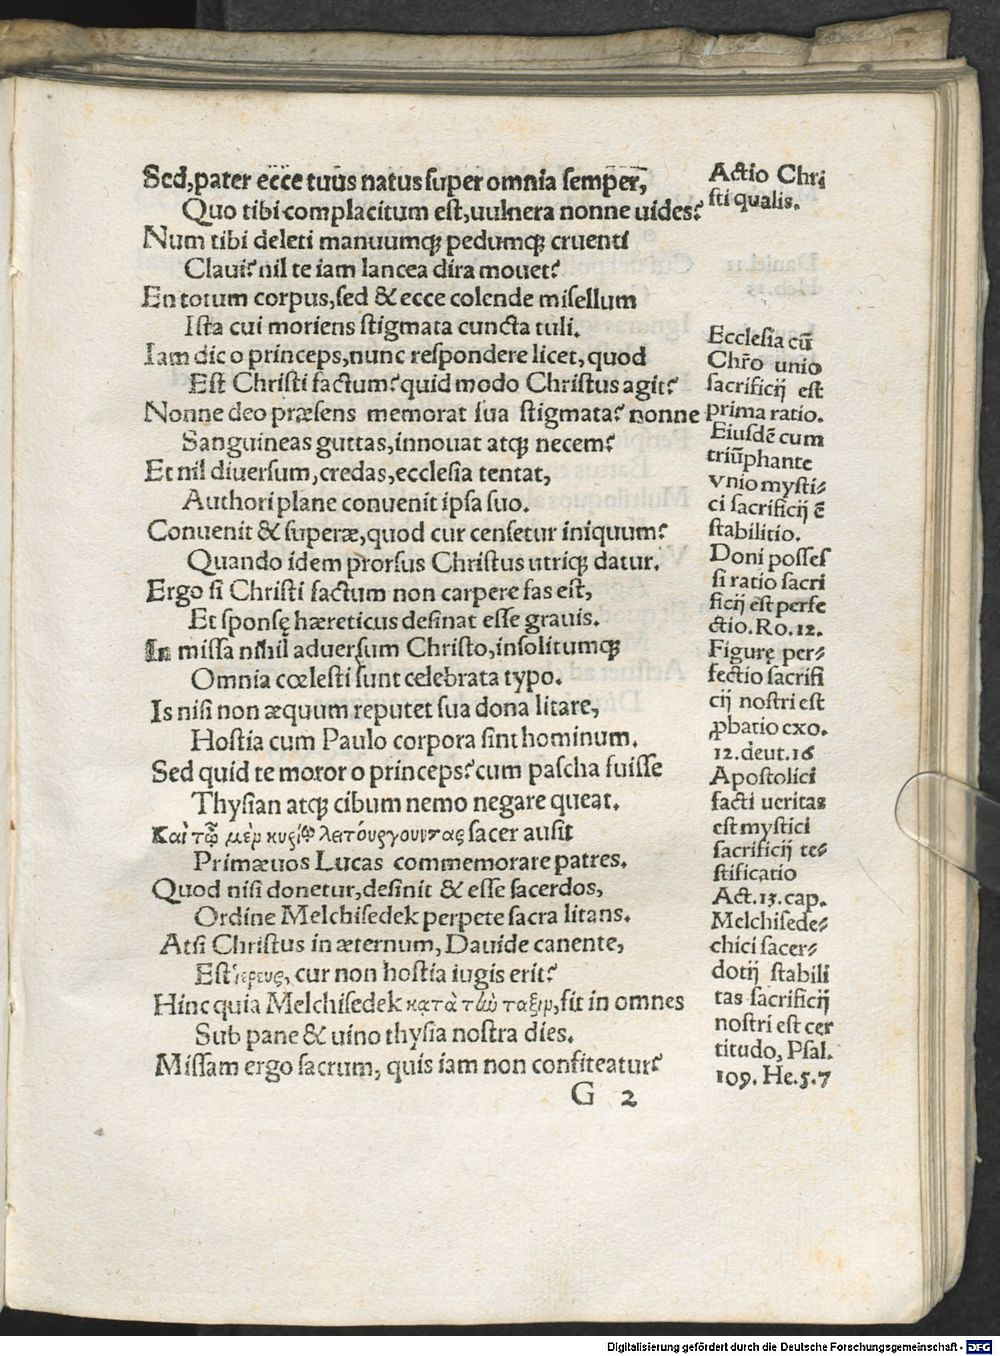 Sed,pater ecce tuus natus super omnia semper,
Quo tibi complacitum est,uulnera nonne uides?
Num tibi deleti manuumqꝫ pedumqꝫ cruenti
Claui? nil te iam lancea dira mouet?
En totum corpus,sed & ecce colende misellum
Ista cui moriens stigmata cuncta tuli.
Iam dic o princeps,nunc respondere licet,quod
Est Christi factum? quid modo Christus agit?
Nonne deo præsens memorat sua stigmata? nonne
Sanguineas guttas,innouat atqꝫ necem?
Et nil diuersum,credas,ecclesia tentat,
Authori plane conuenit ipsa suo.
Conuenit & superæ,quod cur censetur iniquum?
Quando idem prorsus Christus utriqꝫ datur.
Ergo si Christi factum non carpere fas est,
Et sponsę hæreticus desinat esse grauis.
In missa nihil aduersum Christo,insolitumqꝫ
Omnia cœlesti sunt celebrata typo.
Is nisi non æquum reputet sua dona litare,
Hostia cum Paulo corpora sint hominum.
Sed quid te moror o princeps? cum pascha fuisse
Thysian atqꝫ cibum nemo negare queat.
Καὶ τῷ μὲν κυρίῳ λειτουργουντας sacer ausit
Primæuos Lucas commemorare patres.
Quod nisi donetur,desinit & esse sacerdos,
Ordine Melchisedek perpete sacra litans.
Atsi Christus in æternum, Dauide canente,
Est ἱερευς, cur non hostia iugis erit?
Hinc quia Melchisedek κατὰ τὼ ταξιν,sit in omnes
Sub pane & uino thysia nostra dies.
Missam ergo sacrum, quis iam non confiteatur?
G 2
Actio Chri
sti qualis.
Ecclesia cū
Chr̄o unio
sacrificij est
prima ratio.
Eiusdē cum
triūphante
vnio mysti⸗
ci sacrificij ē
stabilitio.
Doni posses
si ratio sacri
ficij est perfe
ctio.Ro.12.
Figurę per⸗
fectio sacrifi
cij nostri est
ꝓbatio exo.
12.deut.16
Apostolici
facti ueritas
est mystici
sacrificij te⸗
stificatio
Act.13.cap.
Melchisede⸗
chici sacer⸗
dotij stabili
tas sacrificij
nostri est cer
titudo, Psal.
109. He.5.7
Digitalisierung gefördert durch die Deutsche Forschungsgemeinschaft - DFG